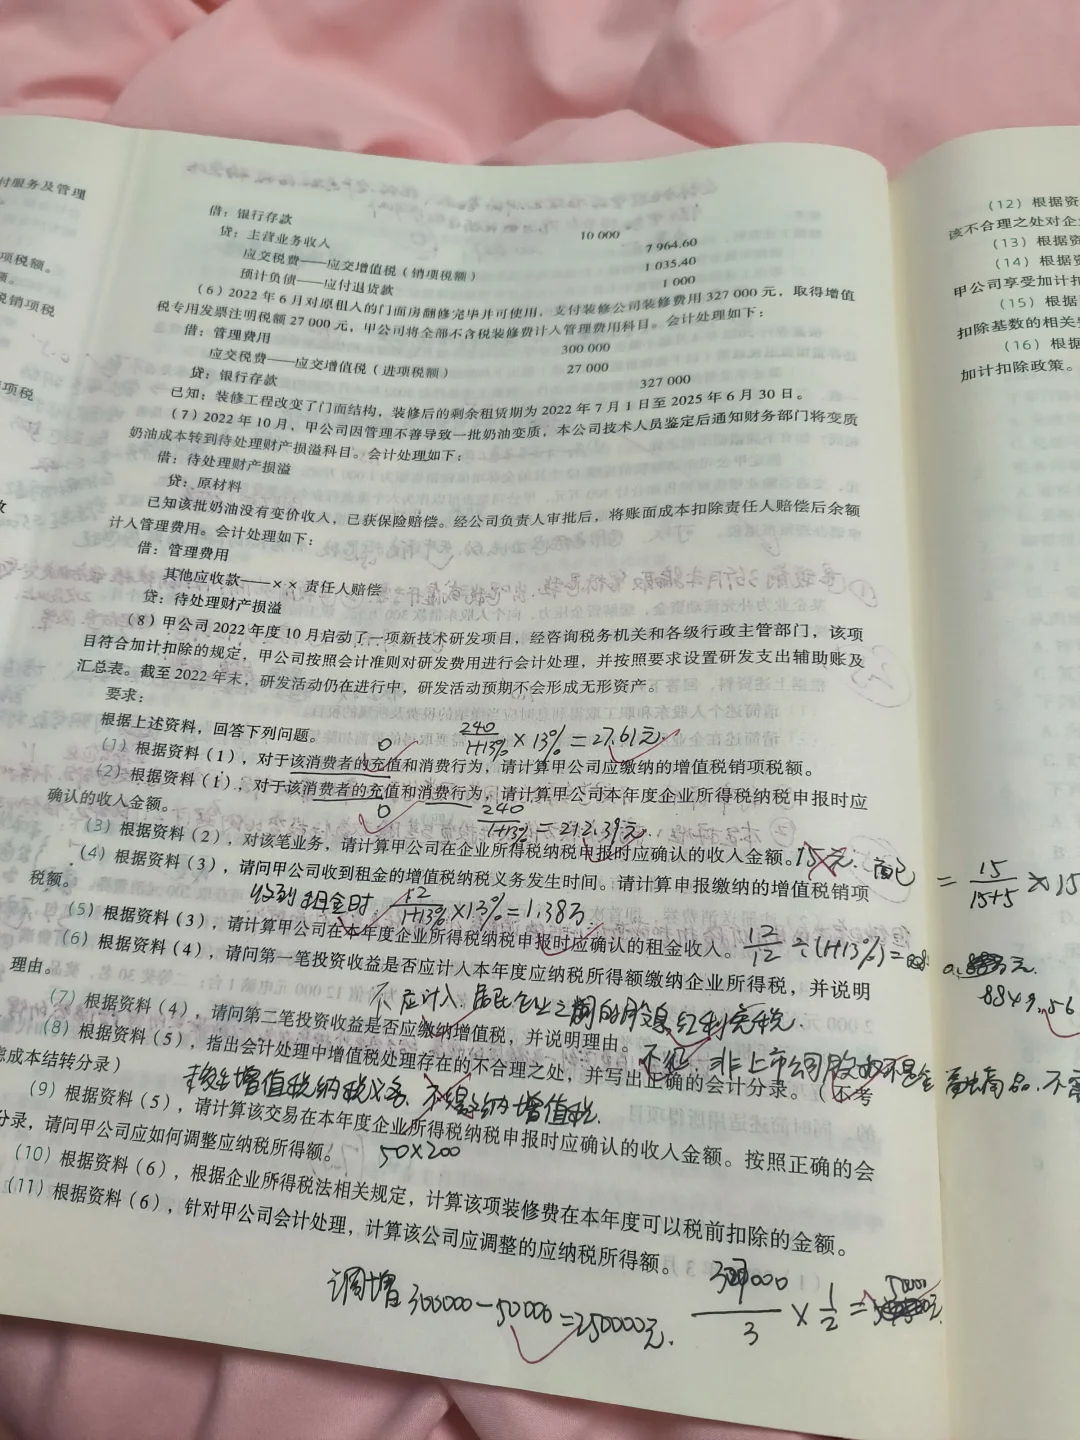 付服务及管理
项税额。
额。
税销项税
项税
借：银行存款 10 000
贷：主营业务收入 7 964.60
应交税费——应交增值税（销项税额） 1 035.40
预计负债——应付退货款 1 000
（6）2022 年 6 月对原租入的门面房翻修完毕并可使用，支付装修公司装修费用 327 000 元，取得增值
税专用发票注明税额 27 000 元，甲公司将全部不含税装修费计入管理费用科目。会计处理如下：
借：管理费用 300 000
应交税费——应交增值税（进项税额） 27 000
贷：银行存款 327 000
已知：装修工程改变了门面结构，装修后的剩余租赁期为 2022 年 7 月 1 日至 2025 年 6 月 30 日。
（7）2022 年 10 月，甲公司因管理不善导致一批奶油变质，本公司技术人员鉴定后通知财务部门将变质
奶油成本转到待处理财产损溢科目。会计处理如下：
借：待处理财产损溢
贷：原材料
已知该批奶油没有变价收入，已获保险赔偿。经公司负责人审批后，将账面成本扣除责任人赔偿后余额
计入管理费用。会计处理如下：
借：管理费用
其他应收款——×× 责任人赔偿
贷：待处理财产损溢
（8）甲公司 2022 年度 10 月启动了一项新技术研发项目，经咨询税务机关和各级行政主管部门，该项
目符合加计扣除的规定，甲公司按照会计准则对研发费用进行会计处理，并按照要求设置研发支出辅助账及
汇总表。截至 2022 年末，研发活动仍在进行中，研发活动预期不会形成无形资产。
要求：
根据上述资料，回答下列问题。
0 240/1+13% × 13% = 27.61元.
（1）根据资料（1），对于该消费者的充值和消费行为，请计算甲公司应缴纳的增值税销项税额。
（2）根据资料（1），对于该消费者的充值和消费行为，请计算甲公司本年度企业所得税纳税申报时应
确认的收入金额。 0 240/1+13% = 212.39元.
（3）根据资料（2），对该笔业务，请计算甲公司在企业所得税纳税申报时应确认的收入金额。15元. = 15/15+5 × 15
（4）根据资料（3），请问甲公司收到租金的增值税纳税义务发生时间。请计算申报缴纳的增值税销项
税额。 收到租金时 12/1+13% ×13% = 1.38万
（5）根据资料（3），请计算甲公司在本年度企业所得税纳税申报时应确认的租金收入。 12/12 ÷(1+13%) =
（6）根据资料（4），请问第一笔投资收益是否应计入本年度应纳税所得额缴纳企业所得税，并说明
理由。 不应计入. 居民企业之间的股息红利免税.
（7）根据资料（4），请问第二笔投资收益是否应缴纳增值税，并说明理由。 不征，非上市公司
（8）根据资料（5），指出会计处理中增值税处理存在的不合理之处，并写出正确的会计分录。（不考
虑成本结转分录）
（9）根据资料（5），请计算该交易在本年度企业所得税纳税申报时应确认的收入金额。按照正确的会
分录，请问甲公司应如何调整应纳税所得额。 50×200
（10）根据资料（6），根据企业所得税法相关规定，计算该项装修费在本年度可以税前扣除的金额。
（11）根据资料（6），针对甲公司会计处理，计算该公司应调整的应纳税所得额。
调增 300000－50000=250000元.
（12）根据资
该不合理之处对企
（13）根据资
（14）根据资
甲公司享受加计扣
（15）根据
扣除基数的相关
（16）根据
加计扣除政策。